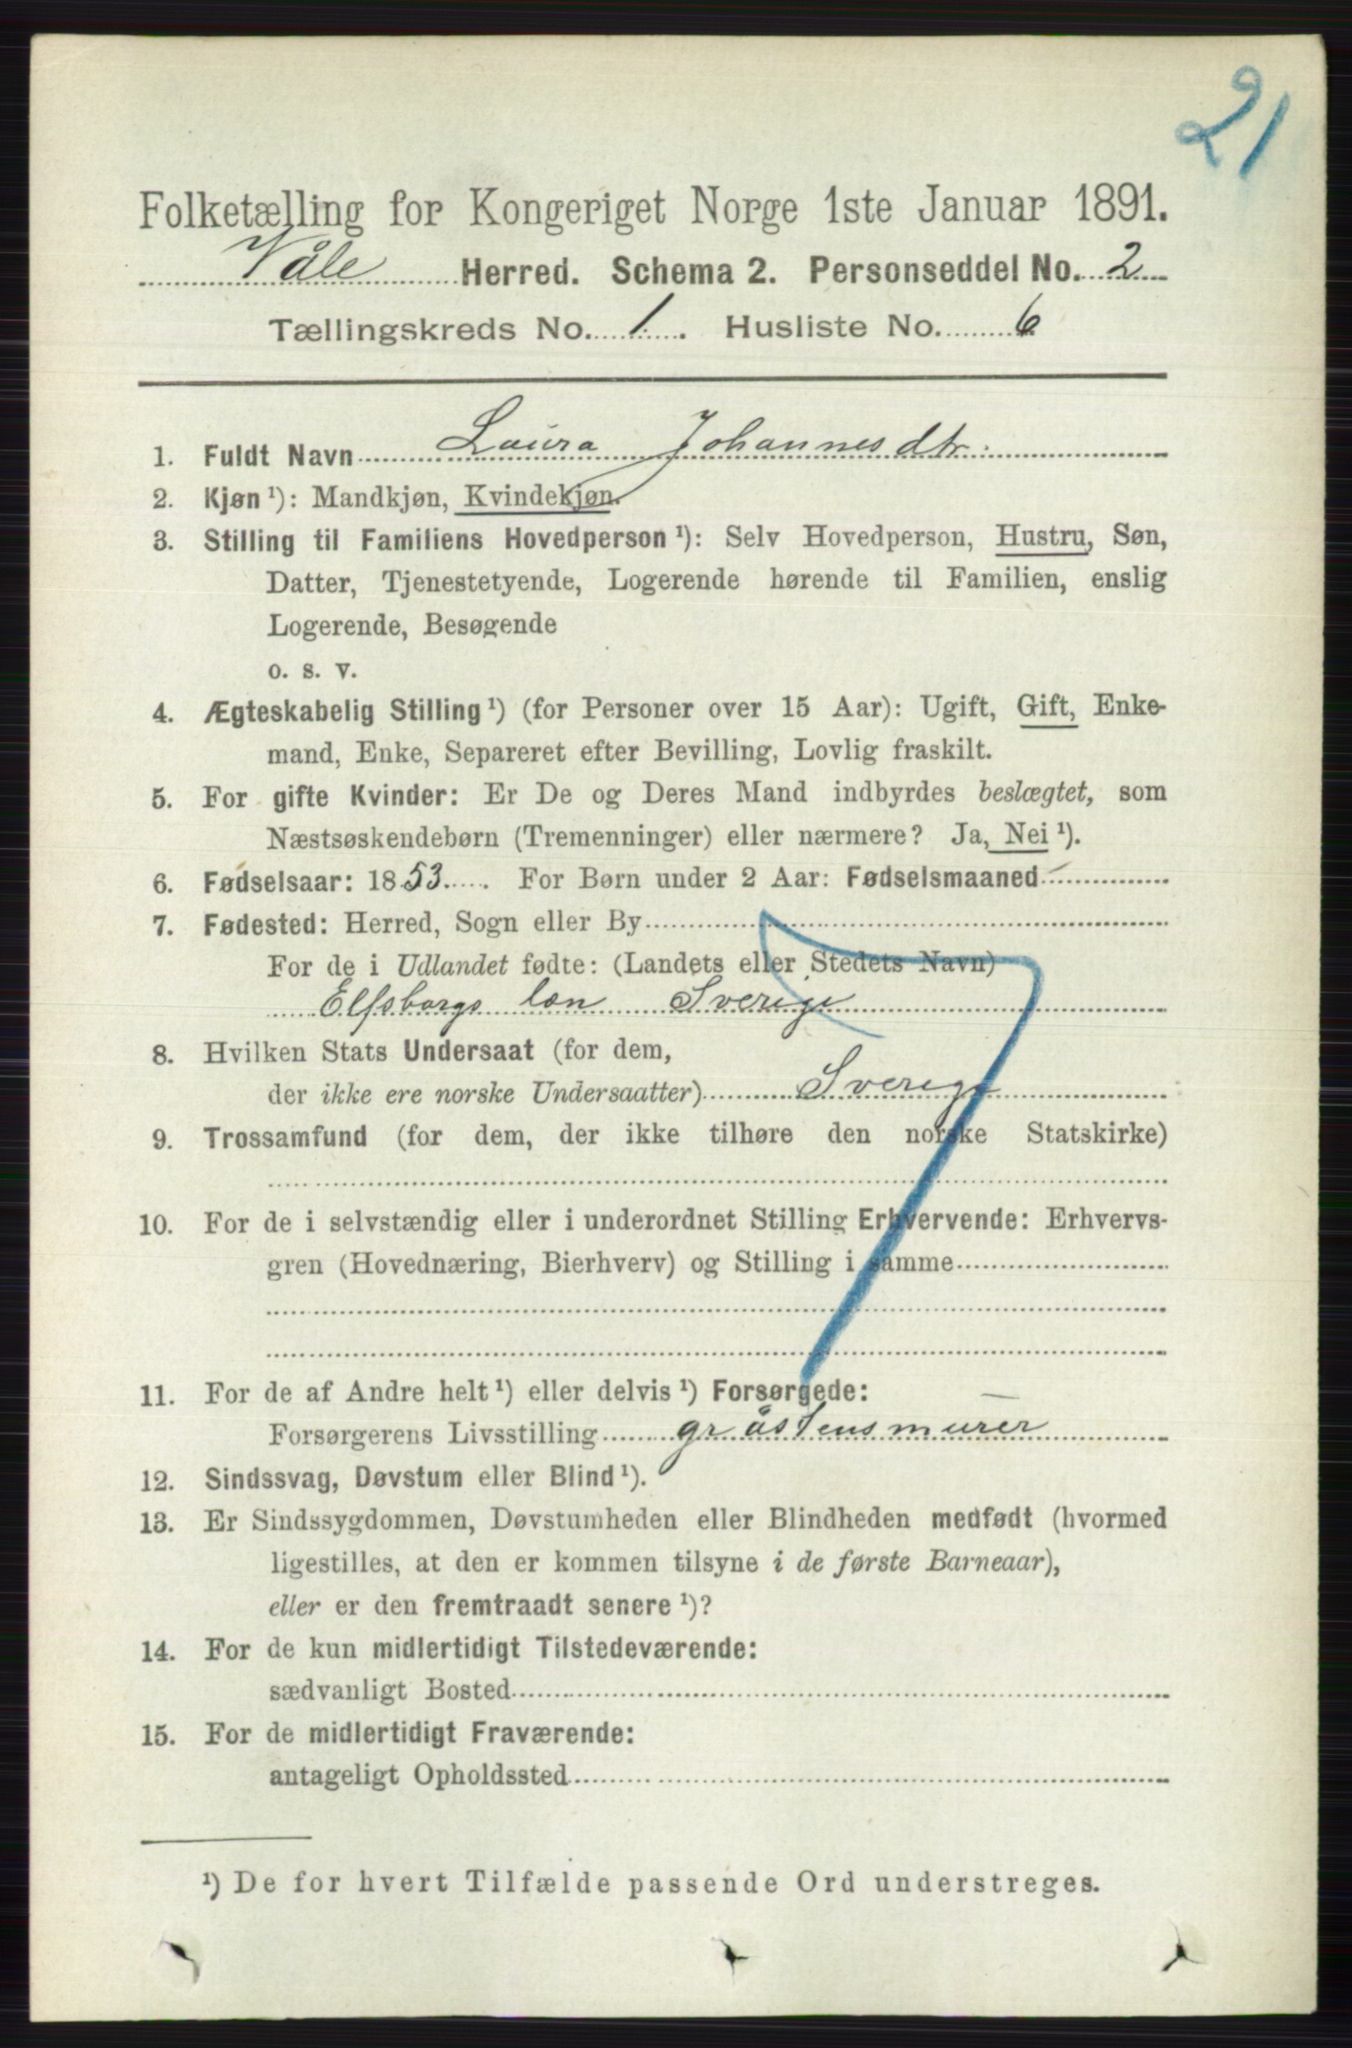 21
Folketælling for Kongeriget Norge 1ste Januar 1891.
Våle Herred. Schema 2. Personseddel No. 2
Tællingskreds No. 1. Husliste No. 6
1. Fuldt Navn Laura Johannesdtr.
2. Kjøn ¹): Mandkjøn, Kvindekjøn.
3. Stilling til Familiens Hovedperson ¹): Selv Hovedperson, Hustru, Søn,
Datter, Tjenestetyende, Logerende hørende til Familien, enslig
Logerende, Besøgende
o. s. v.
4. Ægteskabelig Stilling ¹) (for Personer over 15 Aar): Ugift, Gift, Enke-
mand, Enke, Separeret efter Bevilling, Lovlig fraskilt.
5. For gifte Kvinder: Er De og Deres Mand indbyrdes beslægtet, som
Næstsøskendebørn (Tremenninger) eller nærmere? Ja, Nei ¹).
6. Fødselsaar: 1853. For Børn under 2 Aar: Fødselsmaaned
7. Fødested: Herred, Sogn eller By
For de i Udlandet fødte: (Landets eller Stedets Navn)
Elfsborgs län Sverige
8. Hvilken Stats Undersaat (for dem,
der ikke ere norske Undersaatter) Sverige
9. Trossamfund (for dem, der ikke tilhøre den norske Statskirke)
10. For de i selvstændig eller i underordnet Stilling Erhvervende: Erhvervs-
gren (Hovednæring, Bierhverv) og Stilling i samme
11. For de af Andre helt ¹) eller delvis ¹) Forsørgede:
Forsørgerens Livsstilling gråstensmurer
12. Sindssvag, Døvstum eller Blind ¹).
13. Er Sindssygdommen, Døvstumheden eller Blindheden medfødt (hvormed
ligestilles, at den er kommen tilsyne i de første Barneaar),
eller er den fremtraadt senere ¹)?
14. For de kun midlertidigt Tilstedeværende:
sædvanligt Bosted
15. For de midlertidigt Fraværende:
antageligt Opholdssted
¹) De for hvert Tilfælde passende Ord understreges.